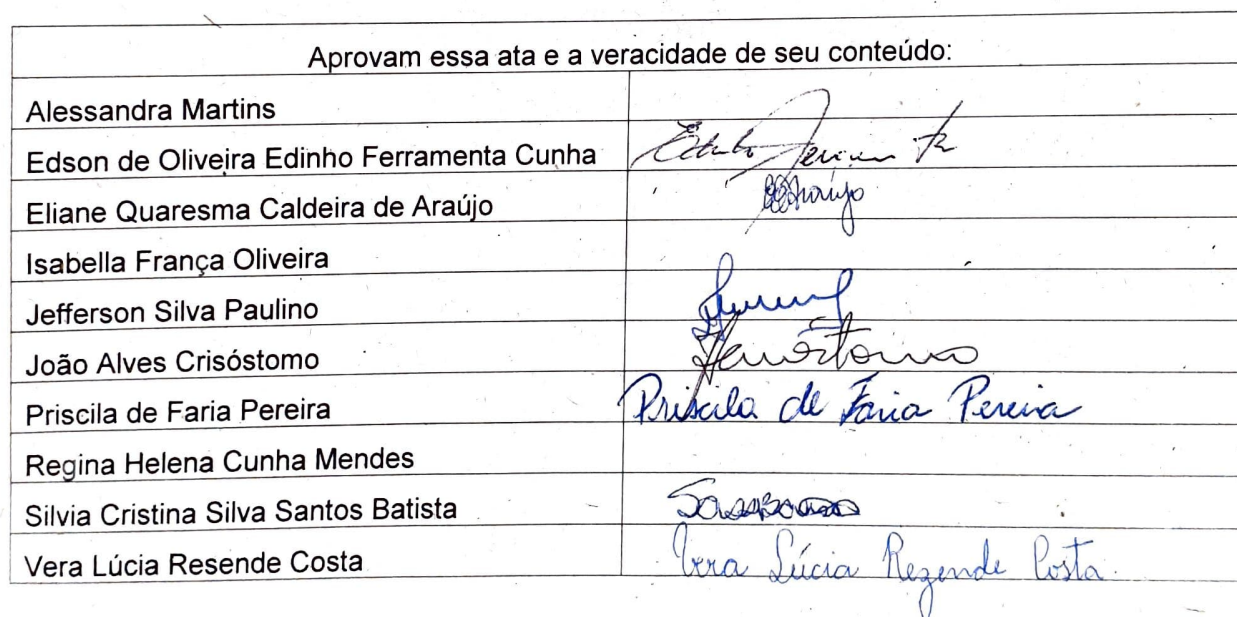 Aprovam essa ata e a veracidade de seu conteúdo:
Alessandra Martins
Edson de Oliveira Edinho Ferramenta Cunha
Eliane Quaresma Caldeira de Araújo
Isabella França Oliveira
Jefferson Silva Paulino
João Alves Crisóstomo
Priscila de Faria Pereira Priscila de Faria Pereira
Regina Helena Cunha Mendes
Silvia Cristina Silva Santos Batista
Vera Lúcia Resende Costa Vera Lúcia Rezende Costa